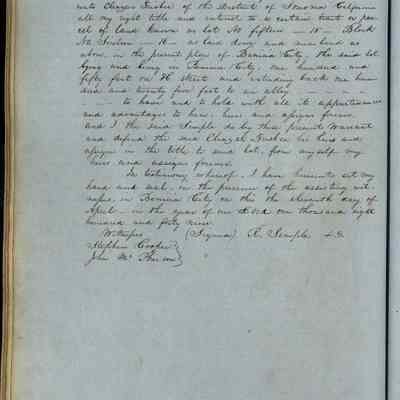 unto Chazer Fusher of the District of Sonoma California
all my right title and interest to a certain tract or par
cel of land known as lot No fifteen - 15 - Block
No Sixteen - 16 - as laid down and numbered as
above, in the present plan of Benicia City the said lot
lying and being in Benicia City, one hundred and
fifty feet on H Street and extending back one hun
dred and twenty five feet to an alley - - - - -
- - - to have and to hold with all its appurtenances
and advantages to him, heirs and assigns forever
and I the said Semple do by these present Warrant
and defend the said Chazer Fusher his heirs and
assigns in the title to said lot, from myself my
heirs and assigns forever.
In testimony whereof, I have hereunto set my
hand and seal, in the presence of the assisting wit
nesses, in Benicia City on this the eleventh day of
April in the year of our Lord one thousand eight
hundred and forty nine
Witnesses (Signed) R. Semple L.S.
Stephen Cooper
John Mc